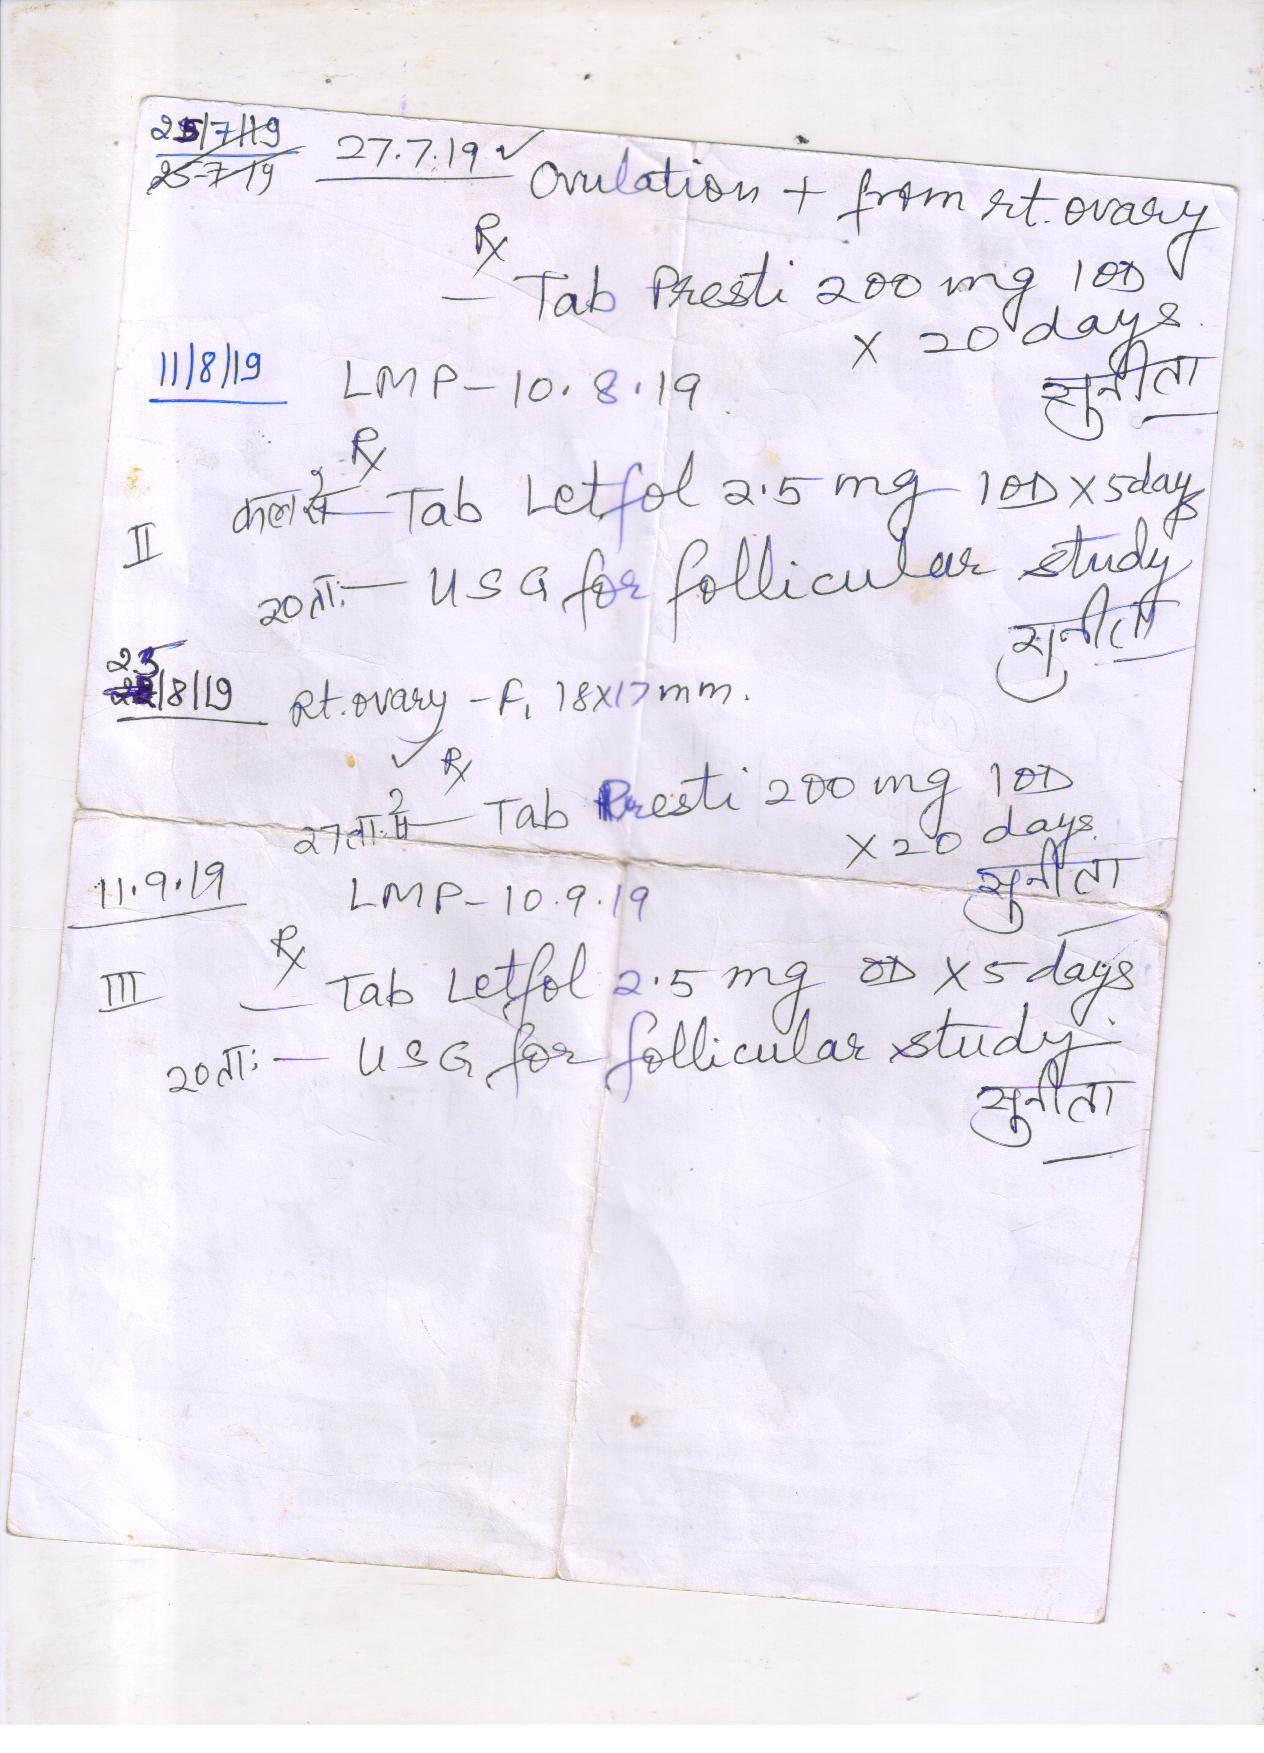 25/7/19
25-7-19
27.7.19 ✓ Ovulation + from rt. ovary
Rx
— Tab Presti 200 mg 1OD
x 20 days.
सुनीता
11/8/19 LMP - 10.8.19
Rx
II कल से — Tab Letfol 2.5 mg 1OD x 5 days
20 ता: — USG for follicular study
सुनीता
25/8/19 Rt. ovary - F1 18x17 mm.
✓ Rx
27 ता: से — Tab Presti 200 mg 1OD
x 20 days.
सुनीता
11.9.19 LMP - 10.9.19
Rx
III — Tab Letfol 2.5 mg OD x 5 days
20 ता: — USG for follicular study.
सुनीता